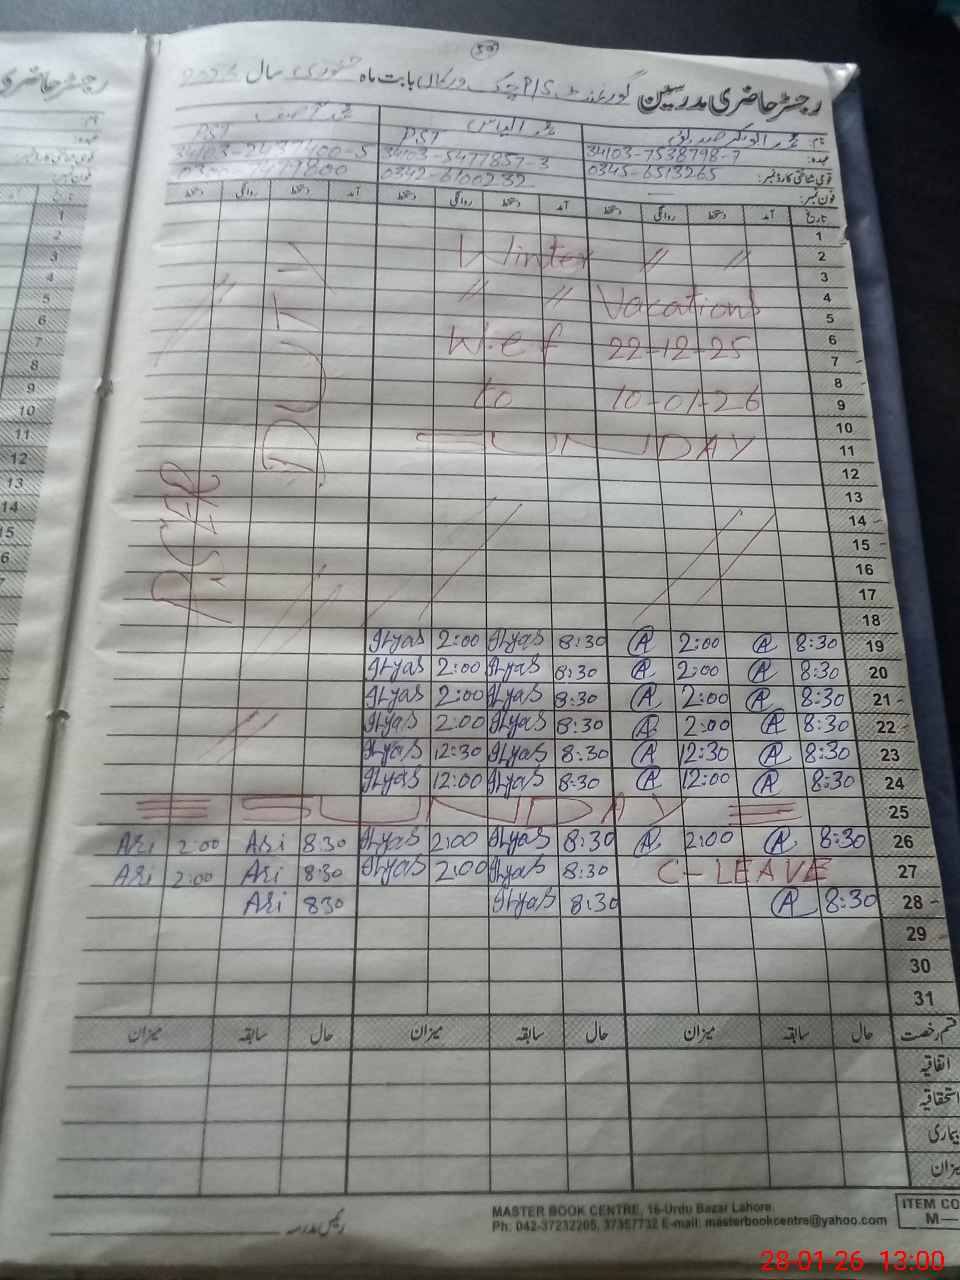 رجسٹر حاضری مدرسین گورنمنٹ P/S چک ورکاں بابت ماہ جنوری سال
نام:
عہدہ: PST PST
قومی شناختی کارڈ نمبر: 34103-7538798-7 34103-5477857-3 34103-2437400-5
فون نمبر: 0345-6513265 0342-6100232
تاریخ آمد دستخط روانگی دستخط آمد دستخط روانگی دستخط آمد دستخط روانگی دستخط
1
2 Winter // //
3
4 // // Vacations
5
6 W.e.f 22-12-25
7
8
9 to 10-01-26
10
11 SUNDAY
12
13
14
15
16
17
18
DUTY
19 8:30 A 2:00 A 8:30 Ilyas 2:00 Ilyas
20 8:30 A 2:00 A 8:30 Ilyas 2:00 Ilyas
21 8:30 A 2:00 A 8:30 Ilyas 2:00 Ilyas
22 8:30 A 2:00 A 8:30 Ilyas 2:00 Ilyas
23 8:30 A 12:30 A 8:30 Ilyas 12:30 Ilyas
24 8:30 A 12:00 A 8:30 Ilyas 12:00 Ilyas
25 SUNDAY
26 8:30 A 2:00 A 8:30 Ilyas 2:00 Ilyas 8:30 Asi 2:00 Asi
27 C-LEAVE 8:30 Ilyas 2:00 Ilyas 8:30 Asi 2:00 Asi
28 8:30 A 8:30 Ilyas 830 Asi
29
30
31
قسم رخصت حال سابقہ میزان حال سابقہ میزان حال سابقہ میزان
اتفاقیہ
استحقاقیہ
بیماری
میزان
رئیس مدرسہ
MASTER BOOK CENTRE, 16-Urdu Bazar Lahore
Ph: 042-37232205, 37357732 E-mail: masterbookcentre@yahoo.com
ITEM CO
M—
28-01-26 13:00